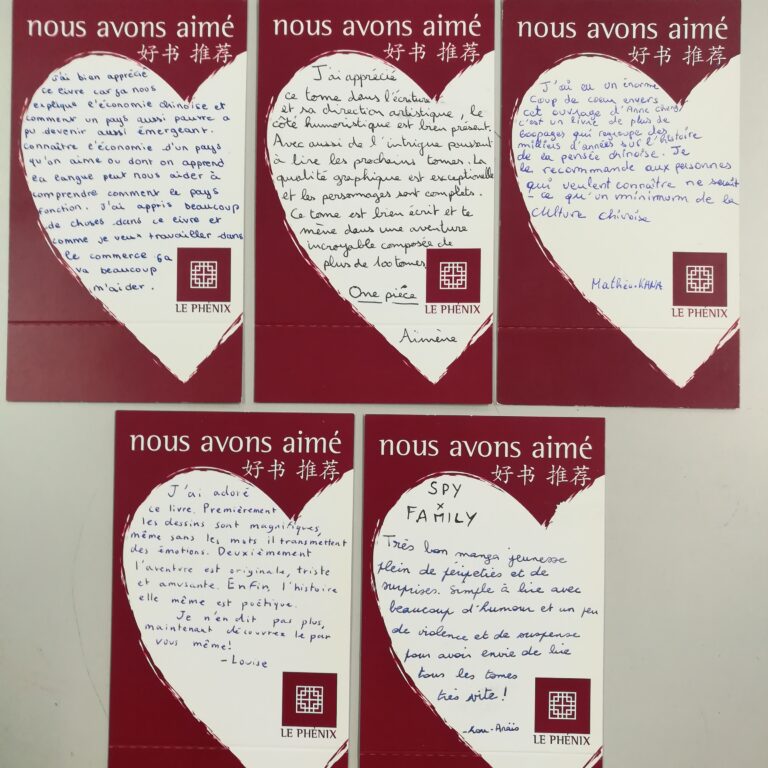 nous avons aimé
好书 推荐
J'ai bien apprécié
ce livre car ça nous
explique l'économie chinoise et
comment un pays aussi pauvre a
pu devenir aussi émergeant.
Connaître l'économie d'un pays
qu'on aime ou dont on apprend
la langue peut nous aider à
comprendre comment le pays
fonction. J'ai appris beaucoup
de choses dans ce livre et
comme je veux travailler dans
le commerce ça
va beaucoup
m'aider.
LE PHÉNIX
nous avons aimé
好书 推荐
J'ai apprécié
ce tome dans l'écriture
et sa direction artistique, le
côté humoristique est bien présent.
Avec aussi de l'intrigue poussant
à lire les prochains tomes. La
qualité graphique est exceptionelle
et les personnages sont complets.
Ce tome est bien écrit et te
mène dans une aventure
incroyable composée de
plus de 100 tomes
One pièce
Aimène
LE PHÉNIX
nous avons aimé
好书 推荐
J'ai eu un énorme
coup de coeur envers
cet ouvrage d'Anne Cheng
c'est un livre de plus de
600pages qui regroupe des
milliers d'années sur l'histoire
de la pensée chinoise. Je
le recommande aux personnes
qui veulent connaître ne serait
- ce qu'un minimum de la
culture chinoise
Mathéu-KANA
LE PHÉNIX
nous avons aimé
好书 推荐
J'ai adoré
ce livre. Premièrement
les dessins sont magnifiques,
même sans les mots il transmettent
des émotions. Deuxièmement
l'aventure est originale, triste
et amusante. Enfin, l'histoire
elle même est poétique.
Je n'en dit pas plus,
maintenant découvrez le par
vous même!
- Louise
LE PHÉNIX
nous avons aimé
好书 推荐
SPY
x
FAMILY
Très bon manga jeunesse
plein de péripeties et de
surprises. Simple à lire avec
beaucoup d'humour et un peu
de violence et de suspense
pour avoir envie de lire
tous les tomes
très vite !
- Lou-Anaïs
LE PHÉNIX